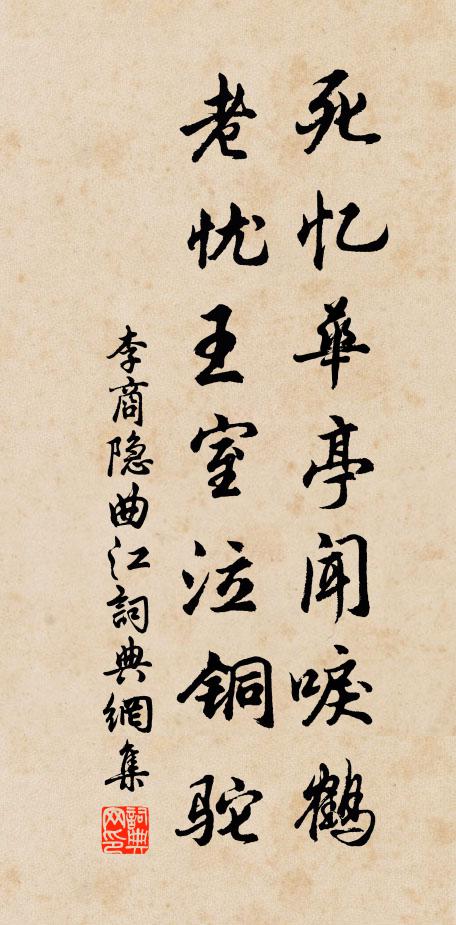 死忆华亭闻唳鹤
老忧王室泣铜驼
李商隐曲江詞典網集
詞典网印